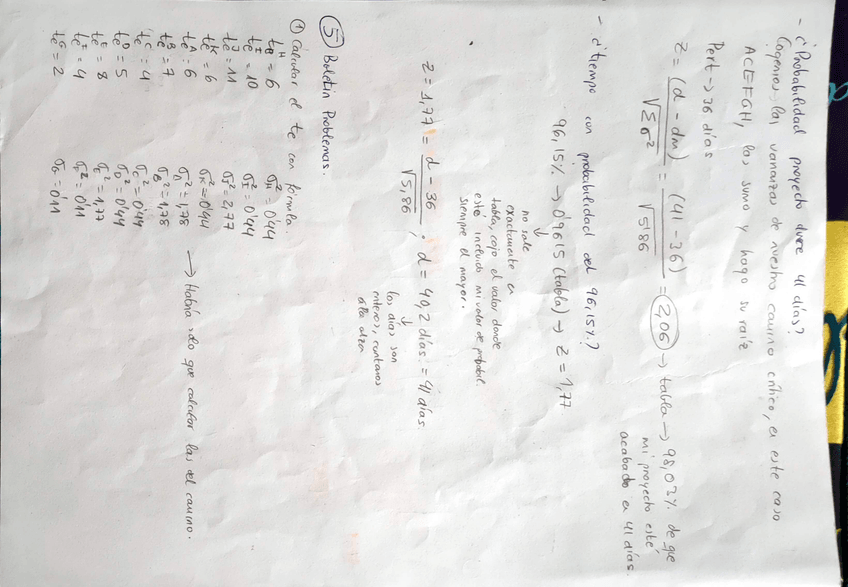 - ¿Probabilidad proyecto dure 41 días?
Cogemos las varianzas de nuestro camino crítico, en este caso
ACEFGH, las sumo y hago su raíz
Pert → 36 días
Z = (d - dm) / √Σσ² = (41 - 36) / √5'86 = 2,06 → tabla → 98,03%. de que
mi proyecto esté
acabado en 41 días.
- ¿tiempo con probabilidad del 96,15%?
96,15% → 0'9615 (tabla) → Z = 1,77
no sale
exactamente en
tabla, cojo el valor donde
esté incluido mi valor de probabil.
siempre el mayor.
Z = 1,77 = d - 36 / √5,86 ; d = 40,2 días = 41 días
los días son
enteros, contamos
al alza
⑤ Boletín Problemas.
① Calcular el te con fórmula.
te^H = 6 σH² = 0'44
te^I = 10 σI² = 0'44
te^J = 11 σJ² = 2,77
te^K = 6 σK² = 0'44
te^A = 6 σA² = 1,78 → Habría sólo que calcular las del camino.
te^B = 7 σB² = 1,78
te^C = 4 σC² = 0'44
te^D = 5 σD² = 0'44
te^E = 8 σE² = 1,77
te^F = 4 σF² = 0'11
te^G = 2 σG = 0'11